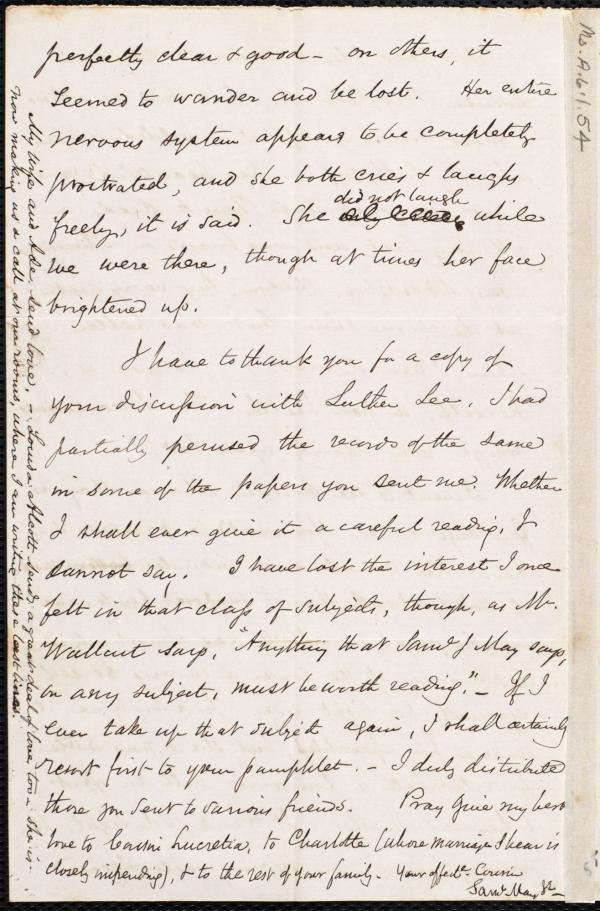 perfectly clear & good – on others, it
seemed to wander and be lost. Her entire
nervous system appears to be completely
prostrated, and she both cries & laughs
freely, it is said. She did not laugh while
we were there, though at times her face
brightened up.
I have to thank you for a copy of
your discussion with Luther Lee. I had
partially perused the records of the same
in some of the papers you sent me. Whether
I shall ever give it a careful reading, I
cannot say. I have lost the interest I once
felt in that class of subjects, though, as Mr.
Wallcut says, "Anything that Saml J May says,
on any subject, must be worth reading." – If I
ever take up that subject again, I shall certainly
resort first to your pamphlet. – I duly distributed
those you sent to various friends. Pray give my best
love to Cousin Lucretia, to Charlotte (whose marriage I hear is
closely impending), & to the rest of your family. Your affecte. Cousin
Saml. May Jr. –
My wife and Ade. send love. – Louisa Alcott sends a great deal of love, too: she is
now making us a call at our rooms, where I am writing these last lines.
Ms. A.6.1.54